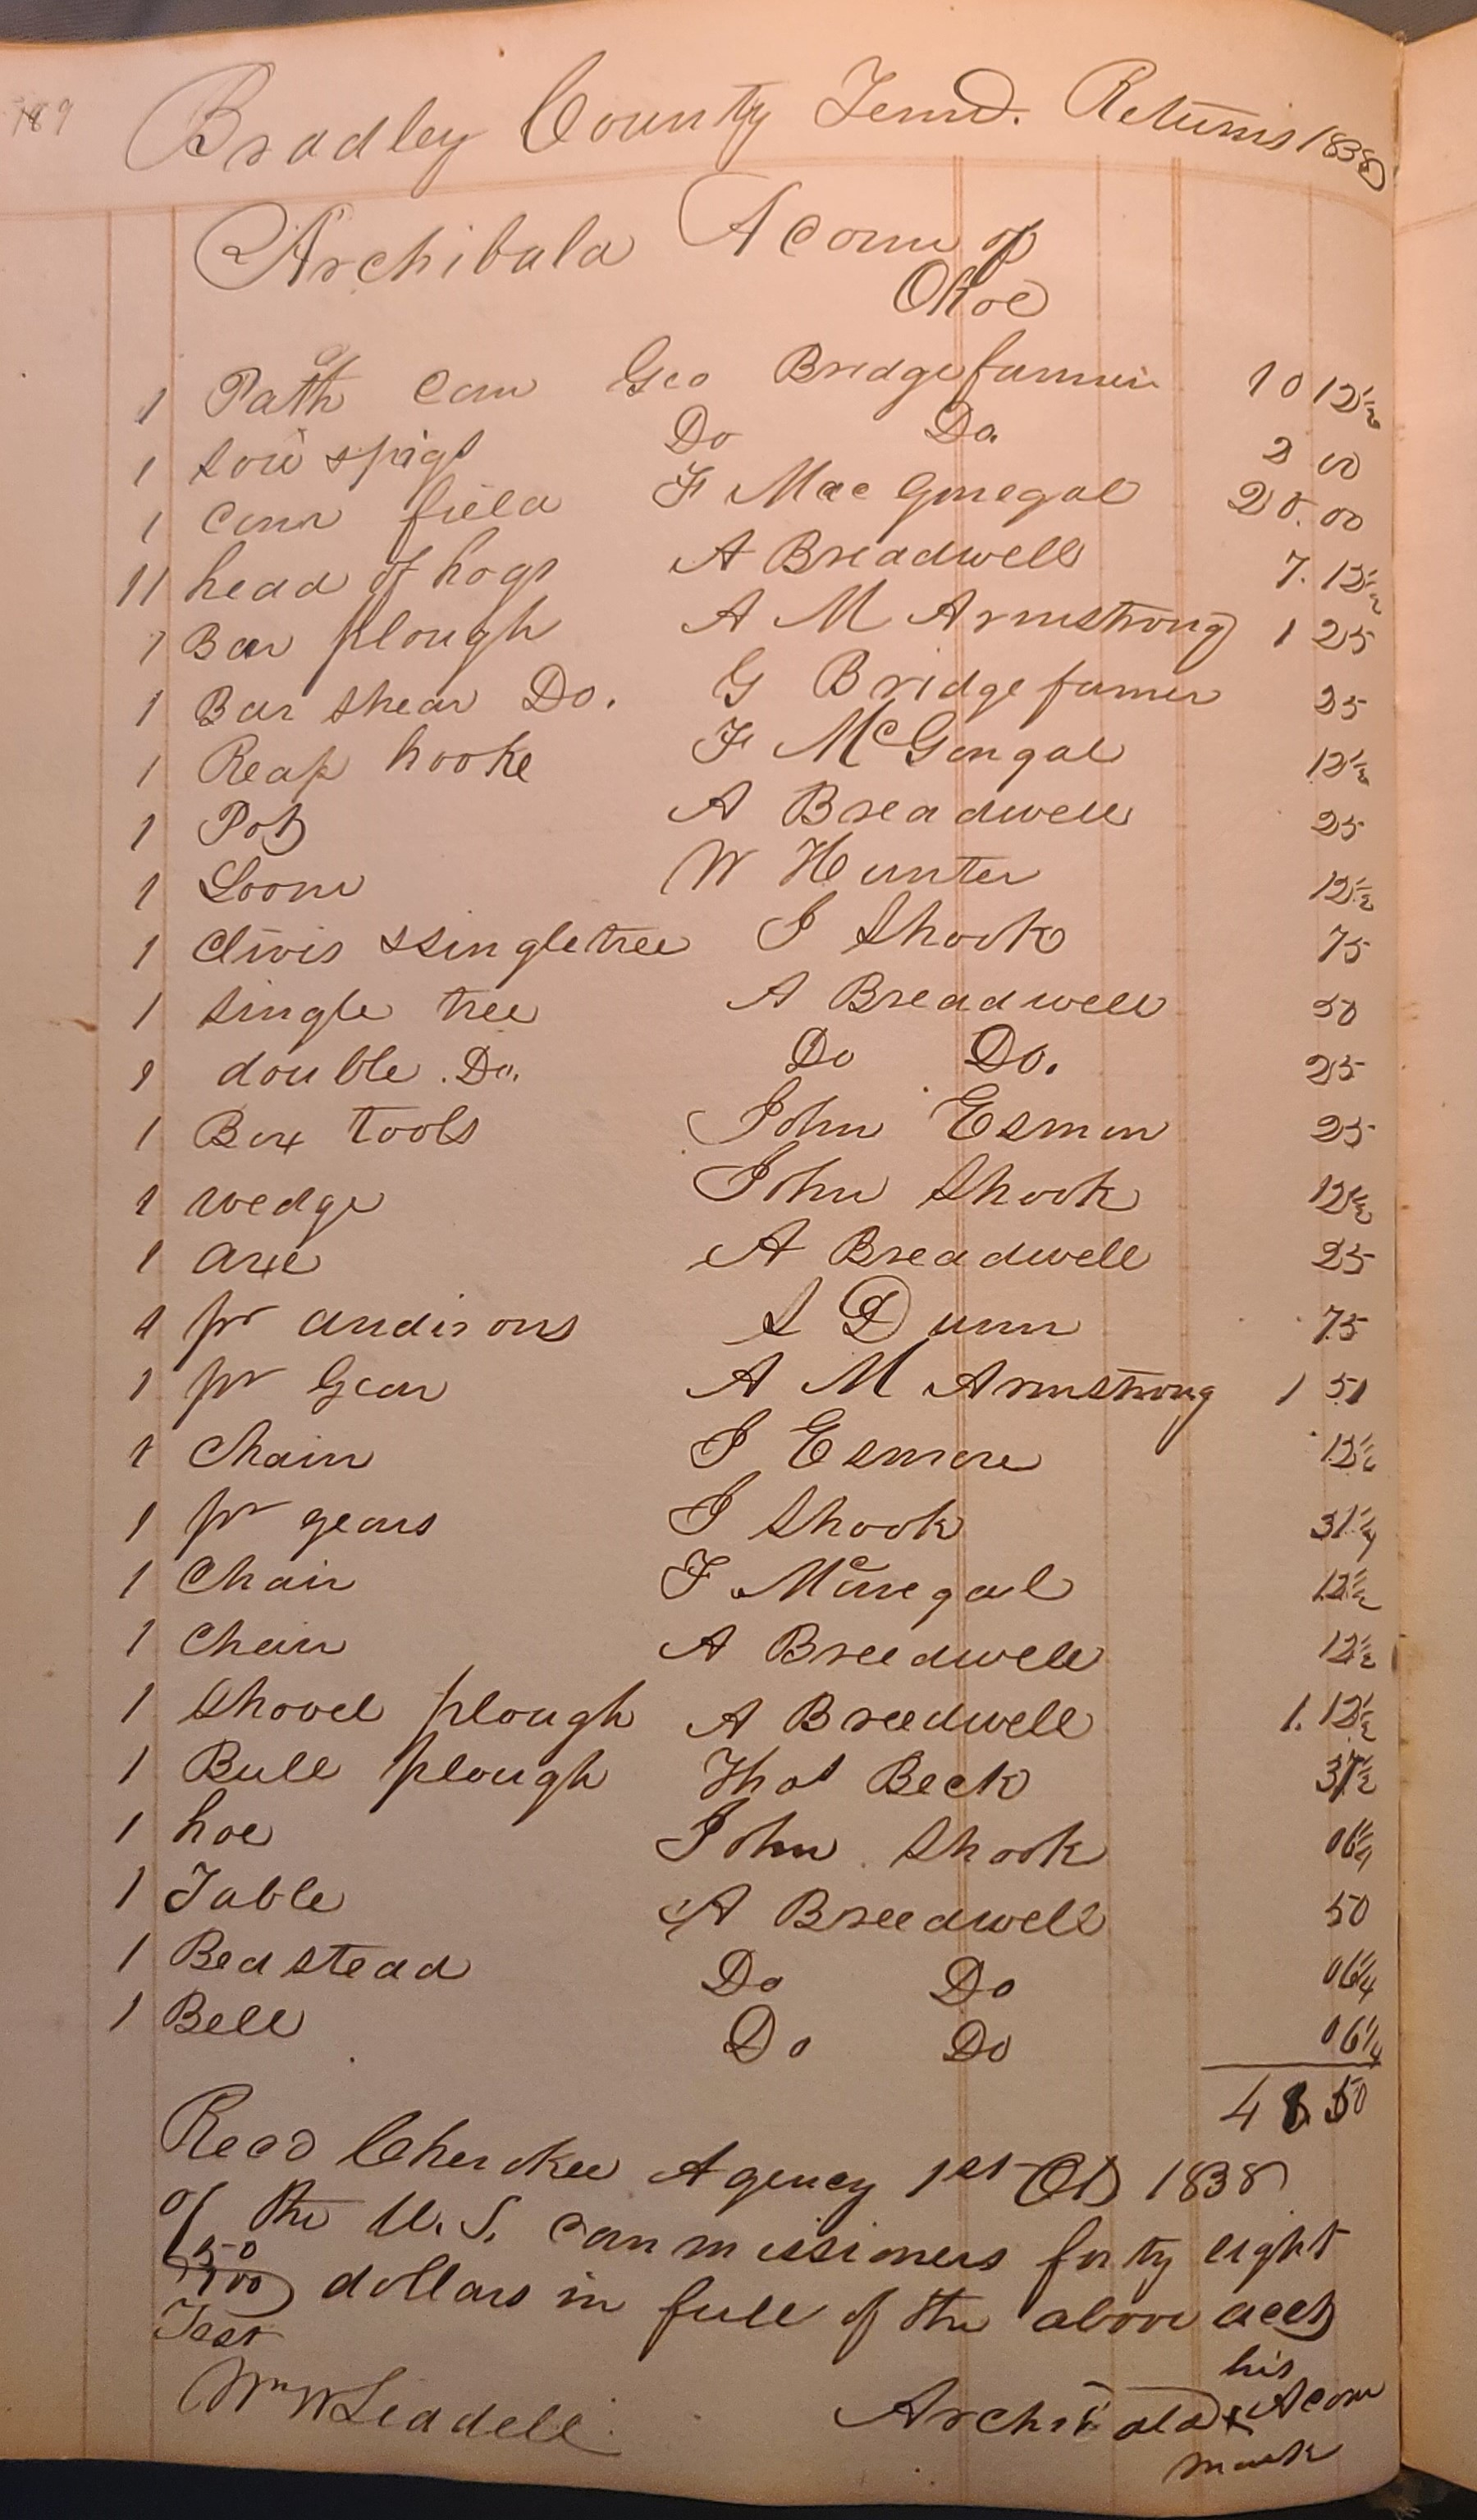 189
Bradley County Tennd. Returns 1838
Archibald Acorn of
Okoe
1 Path Corn Geo Bridgefarmer 10 12½
1 sow & pigs Do Do. 2 00
1 Corn field F MacGonegal 20.00
11 head of hogs A Breadwell 7. 12½
1 Bar plough A M Armstrong 1 25
1 Bar Shear Do. G Bridgefarmer 25
1 Reap hooke F McGongal 12½
1 Pot A Breadwell 25
1 Loom W Hunter 12½
1 Clivis & singletree J Shook 75
1 single tree A Breadwell 50
1 double. Do. Do Do. 25
1 Box tools John Esmon 25
1 wedge John Shook 12½
1 axe A Breadwell 25
1 pr andirons S Dunn 75
1 pr Gear A M Armstrong 1 51
1 Chain J Esmore 12½
1 pr gears J Shook 31¼
1 Chair F 12½
1 Chair A Breedwell 12½
1 Shovel plough A Breedwell 1. 12½
1 Bull plough Thos Beck 37½
1 hoe John Shook 06¼
1 Table A Breedwell 50
1 Bedstead Do Do 06¼
1 Bell Do Do 06¼
48.50
Recd Cherokee Agency 1st Oct 1838
of the U.S. commissioners forty eight
50/100 dollars in full of the above acct
Test his
Wm W Liddell Archibald x Acorn
mark